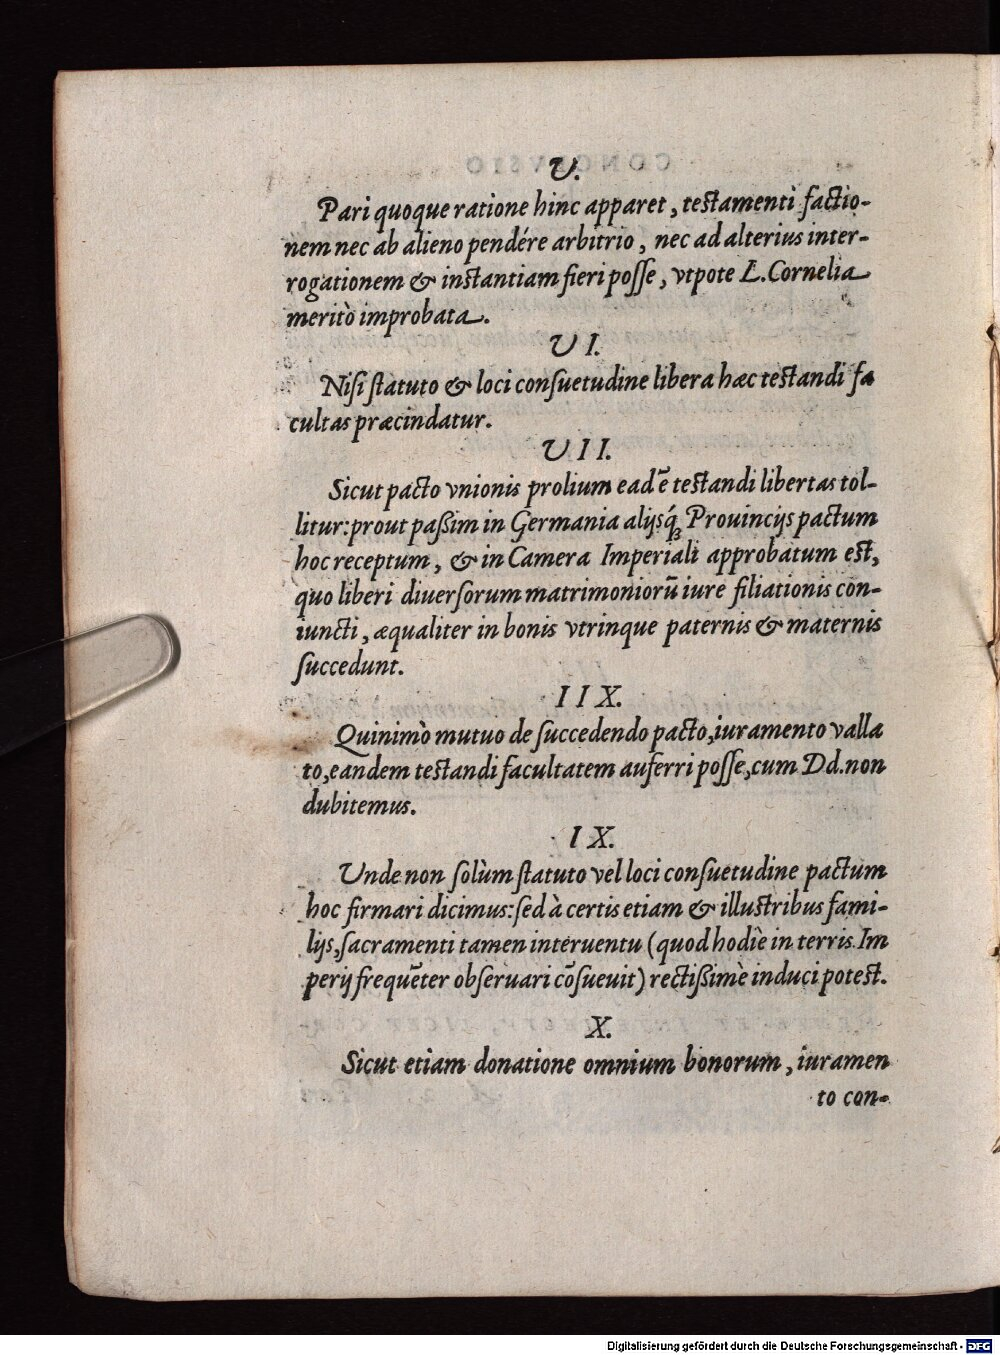 V.
Pari quoque ratione hinc apparet, testamenti factio-
nem nec ab alieno pendére arbitrio, nec ad alterius inter-
rogationem & instantiam fieri posse, vtpote L. Cornelia
meritò improbata.
VI.
Nisi statuto & loci consuetudine libera hæc testandi fa
cultas præcindatur.
VII.
Sicut pacto vnionis prolium eadẽ testandi libertas tol-
litur: prout paßim in Germania alijsq́; Prouincijs pactum
hoc receptum, & in Camera Imperiali approbatum est,
quo liberi diuersorum matrimoniorũ iure filiationis con-
iuncti, æqualiter in bonis vtrinque paternis & maternis
succedunt.
IIX.
Quinimò mutuo de succedendo pacto, iuramento valla
to, eandem testandi facultatem auferri posse, cum Dd. non
dubitemus.
IX.
Unde non solùm statuto vel loci consuetudine pactum
hoc firmari dicimus: sed à certis etiam & illustribus fami-
lijs, sacramenti tamen interuentu (quod hodie in terris Im
perij frequẽter obseruari cõsueuit) rectißimè induci potest.
X.
Sicut etiam donatione omnium bonorum, iuramen
to con-
Digitalisierung gefördert durch die Deutsche Forschungsgemeinschaft - DFG